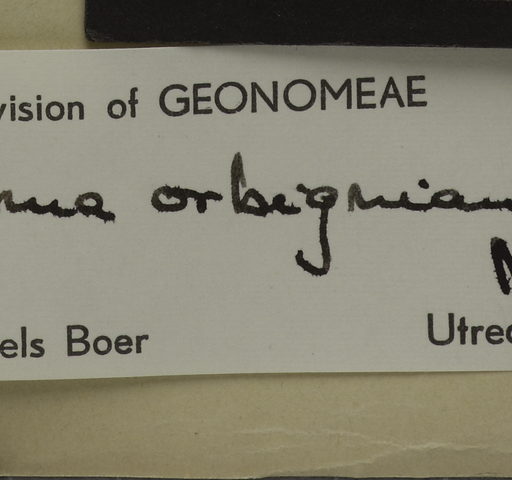 vision of GEONOMEAE
ma orbignian
els Boer Utrec